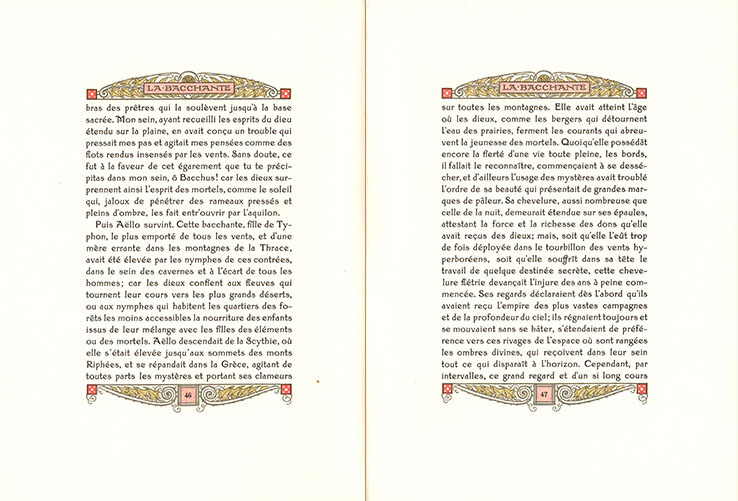 LA·BACCHANTE
bras des prêtres qui la soulèvent jusqu'à la base
sacrée. Mon sein, ayant recueilli les esprits du dieu
étendu sur la plaine, en avait conçu un trouble qui
pressait mes pas et agitait mes pensées comme des
flots rendus insensés par les vents. Sans doute, ce
fut à la faveur de cet égarement que tu te préci-
pitas dans mon sein, ô Bacchus! car les dieux sur-
prennent ainsi l'esprit des mortels, comme le soleil
qui, jaloux de pénétrer des rameaux pressés et
pleins d'ombre, les fait entr'ouvrir par l'aquilon.
Puis Aëllo survint. Cette bacchante, fille de Ty-
phon, le plus emporté de tous les vents, et d'une
mère errante dans les montagnes de la Thrace,
avait été élevée par les nymphes de ces contrées,
dans le sein des cavernes et à l'écart de tous les
hommes; car les dieux confient aux fleuves qui
tournent leur cours vers les plus grands déserts,
ou aux nymphes qui habitent les quartiers des fo-
rêts les moins accessibles la nourriture des enfants
issus de leur mélange avec les filles des éléments
ou des mortels. Aëllo descendait de la Scythie, où
elle s'était élevée jusqu'aux sommets des monts
Riphées, et se répandait dans la Grèce, agitant de
toutes parts les mystères et portant ses clameurs
46
LA·BACCHANTE
sur toutes les montagnes. Elle avait atteint l'âge
où les dieux, comme les bergers qui détournent
l'eau des prairies, ferment les courants qui abreu-
vent la jeunesse des mortels. Quoiqu'elle possédât
encore la fierté d'une vie toute pleine, les bords,
il fallait le reconnaître, commençaient à se dessé-
cher, et d'ailleurs l'usage des mystères avait troublé
l'ordre de sa beauté qui présentait de grandes mar-
ques de pâleur. Sa chevelure, aussi nombreuse que
celle de la nuit, demeurait étendue sur ses épaules,
attestant la force et la richesse des dons qu'elle
avait reçus des dieux; mais, soit qu'elle l'eût trop
de fois déployée dans le tourbillon des vents hy-
perboréens, soit qu'elle souffrît dans sa tête le
travail de quelque destinée secrète, cette cheve-
lure flétrie devançait l'injure des ans à peine com-
mencée. Ses regards déclaraient dès l'abord qu'ils
avaient reçu l'empire des plus vastes campagnes
et de la profondeur du ciel; ils régnaient toujours et
se mouvaient sans se hâter, s'étendaient de préfé-
rence vers ces rivages de l'espace où sont rangées
les ombres divines, qui reçoivent dans leur sein
tout ce qui disparaît à l'horizon. Cependant, par
intervalles, ce grand regard et d'un si long cours
47